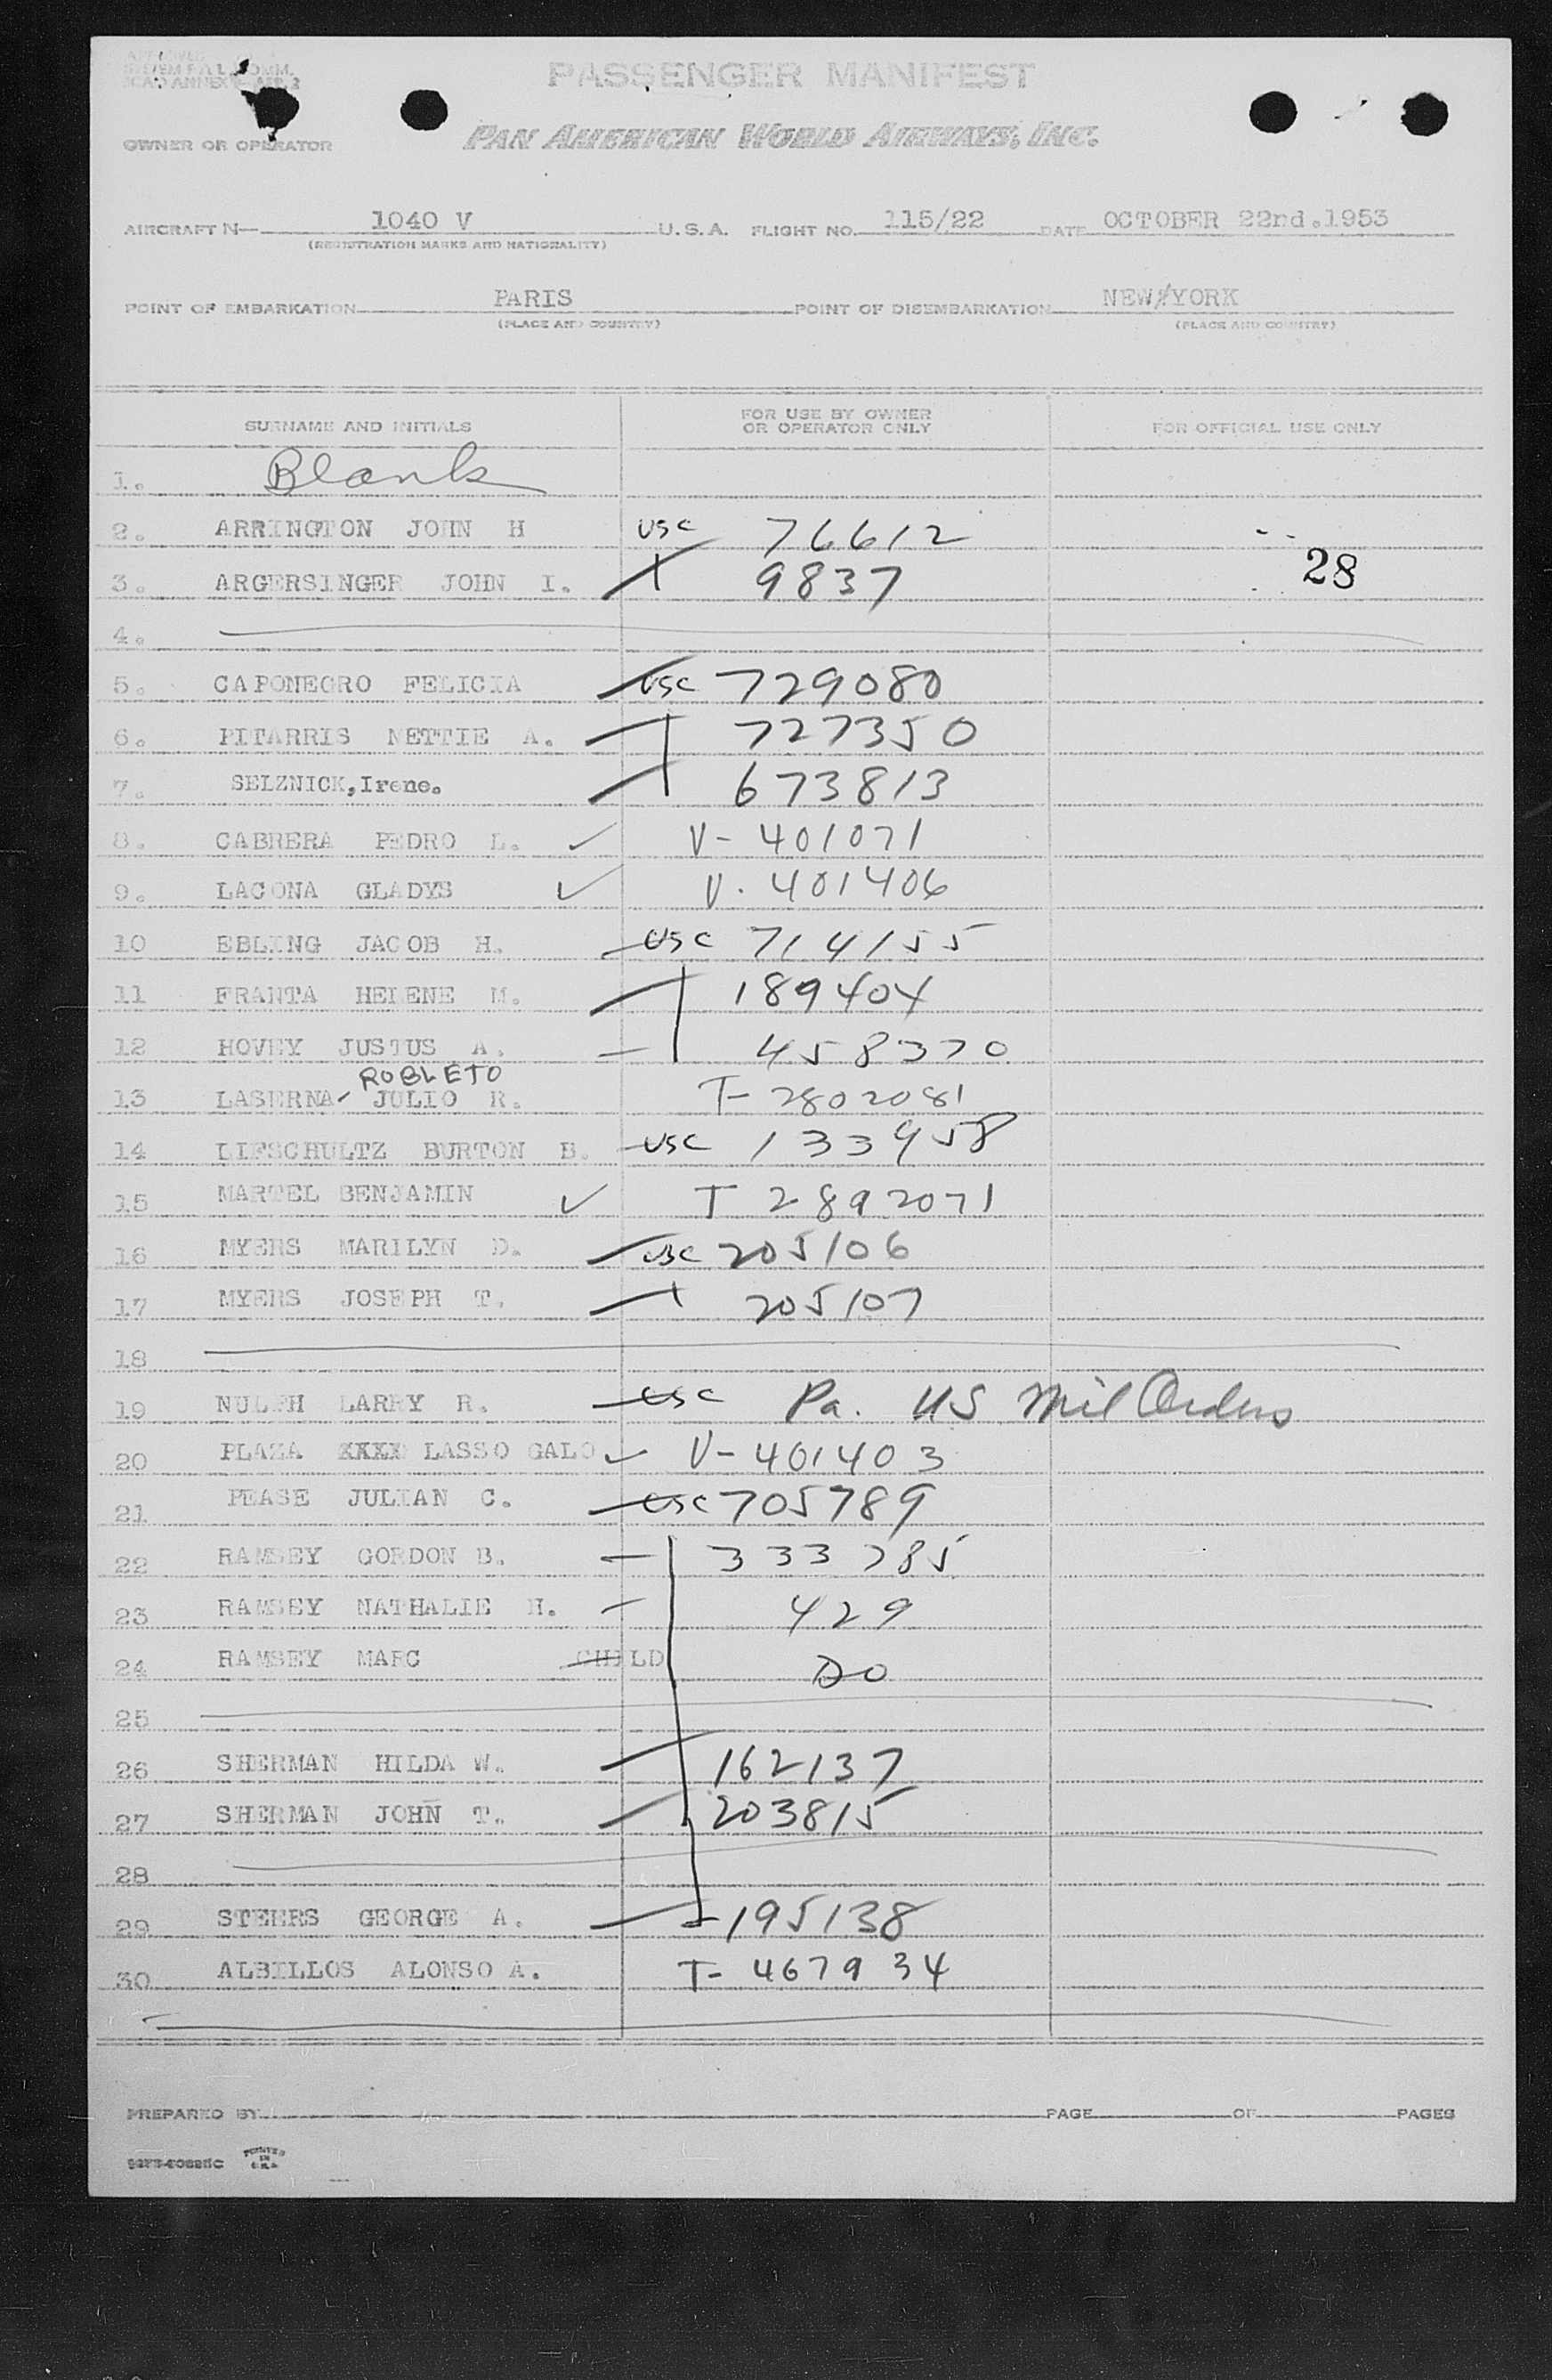 PASSENGER MANIFEST
OWNER OR OPERATOR PAN AMERICAN WORLD AIRWAYS, INC.
AIRCRAFT N- 1040 V U.S.A. FLIGHT NO. 115/22 DATE OCTOBER 22nd.1953
(REGISTRATION MARKS AND NATIONALITY)
POINT OF EMBARKATION PARIS POINT OF DISEMBARKATION NEW/YORK
(PLACE AND COUNTRY) (PLACE AND COUNTRY)
SURNAME AND INITIALS FOR USE BY OWNER OR OPERATOR ONLY FOR OFFICIAL USE ONLY
1. Blank
2. ARRINGTON JOHN H USC 76612
28
3. ARGERSINGER JOHN I. 9837
4.
5. CAPONEGRO FELICIA USC 729080
6. PITARRIS NETTIE A. 727350
7. SELZNICK,Irene. 673813
8. CABRERA PEDRO L. V- 401071
9. LACONA GLADYS V. 401406
10 EBLING JACOB H. USC 714155
11 FRANTA HELENE M. 189404
12 HOVEY JUSTUS A. 458370
ROBLETO
13 LASERNA JULIO R. T- 2802081
14 LIFSCHULTZ BURTON B. USC 133958
15 MARTEL BENJAMIN T 2892071
16 MYERS MARILYN D. USC 205106
17 MYERS JOSEPH T. 205107
18
19 NULPH LARRY R. USC Pa. US Mil Orders
20 PLAZA XXXX LASSO GALO V- 401403
21 PEASE JULIAN C. USC 705789
22 RAMSEY GORDON B. 333785
23 RAMSEY NATHALIE H. 429
24 RAMSEY MARC CHILD DO
25
26 SHERMAN HILDA W. 162137
27 SHERMAN JOHN T. 203815
28
29 STEERS GEORGE A. 195138
30 ALBILLOS ALONSO A. T- 467934
PREPARED BY PAGE OF PAGES
PRINTED IN U.S.A.